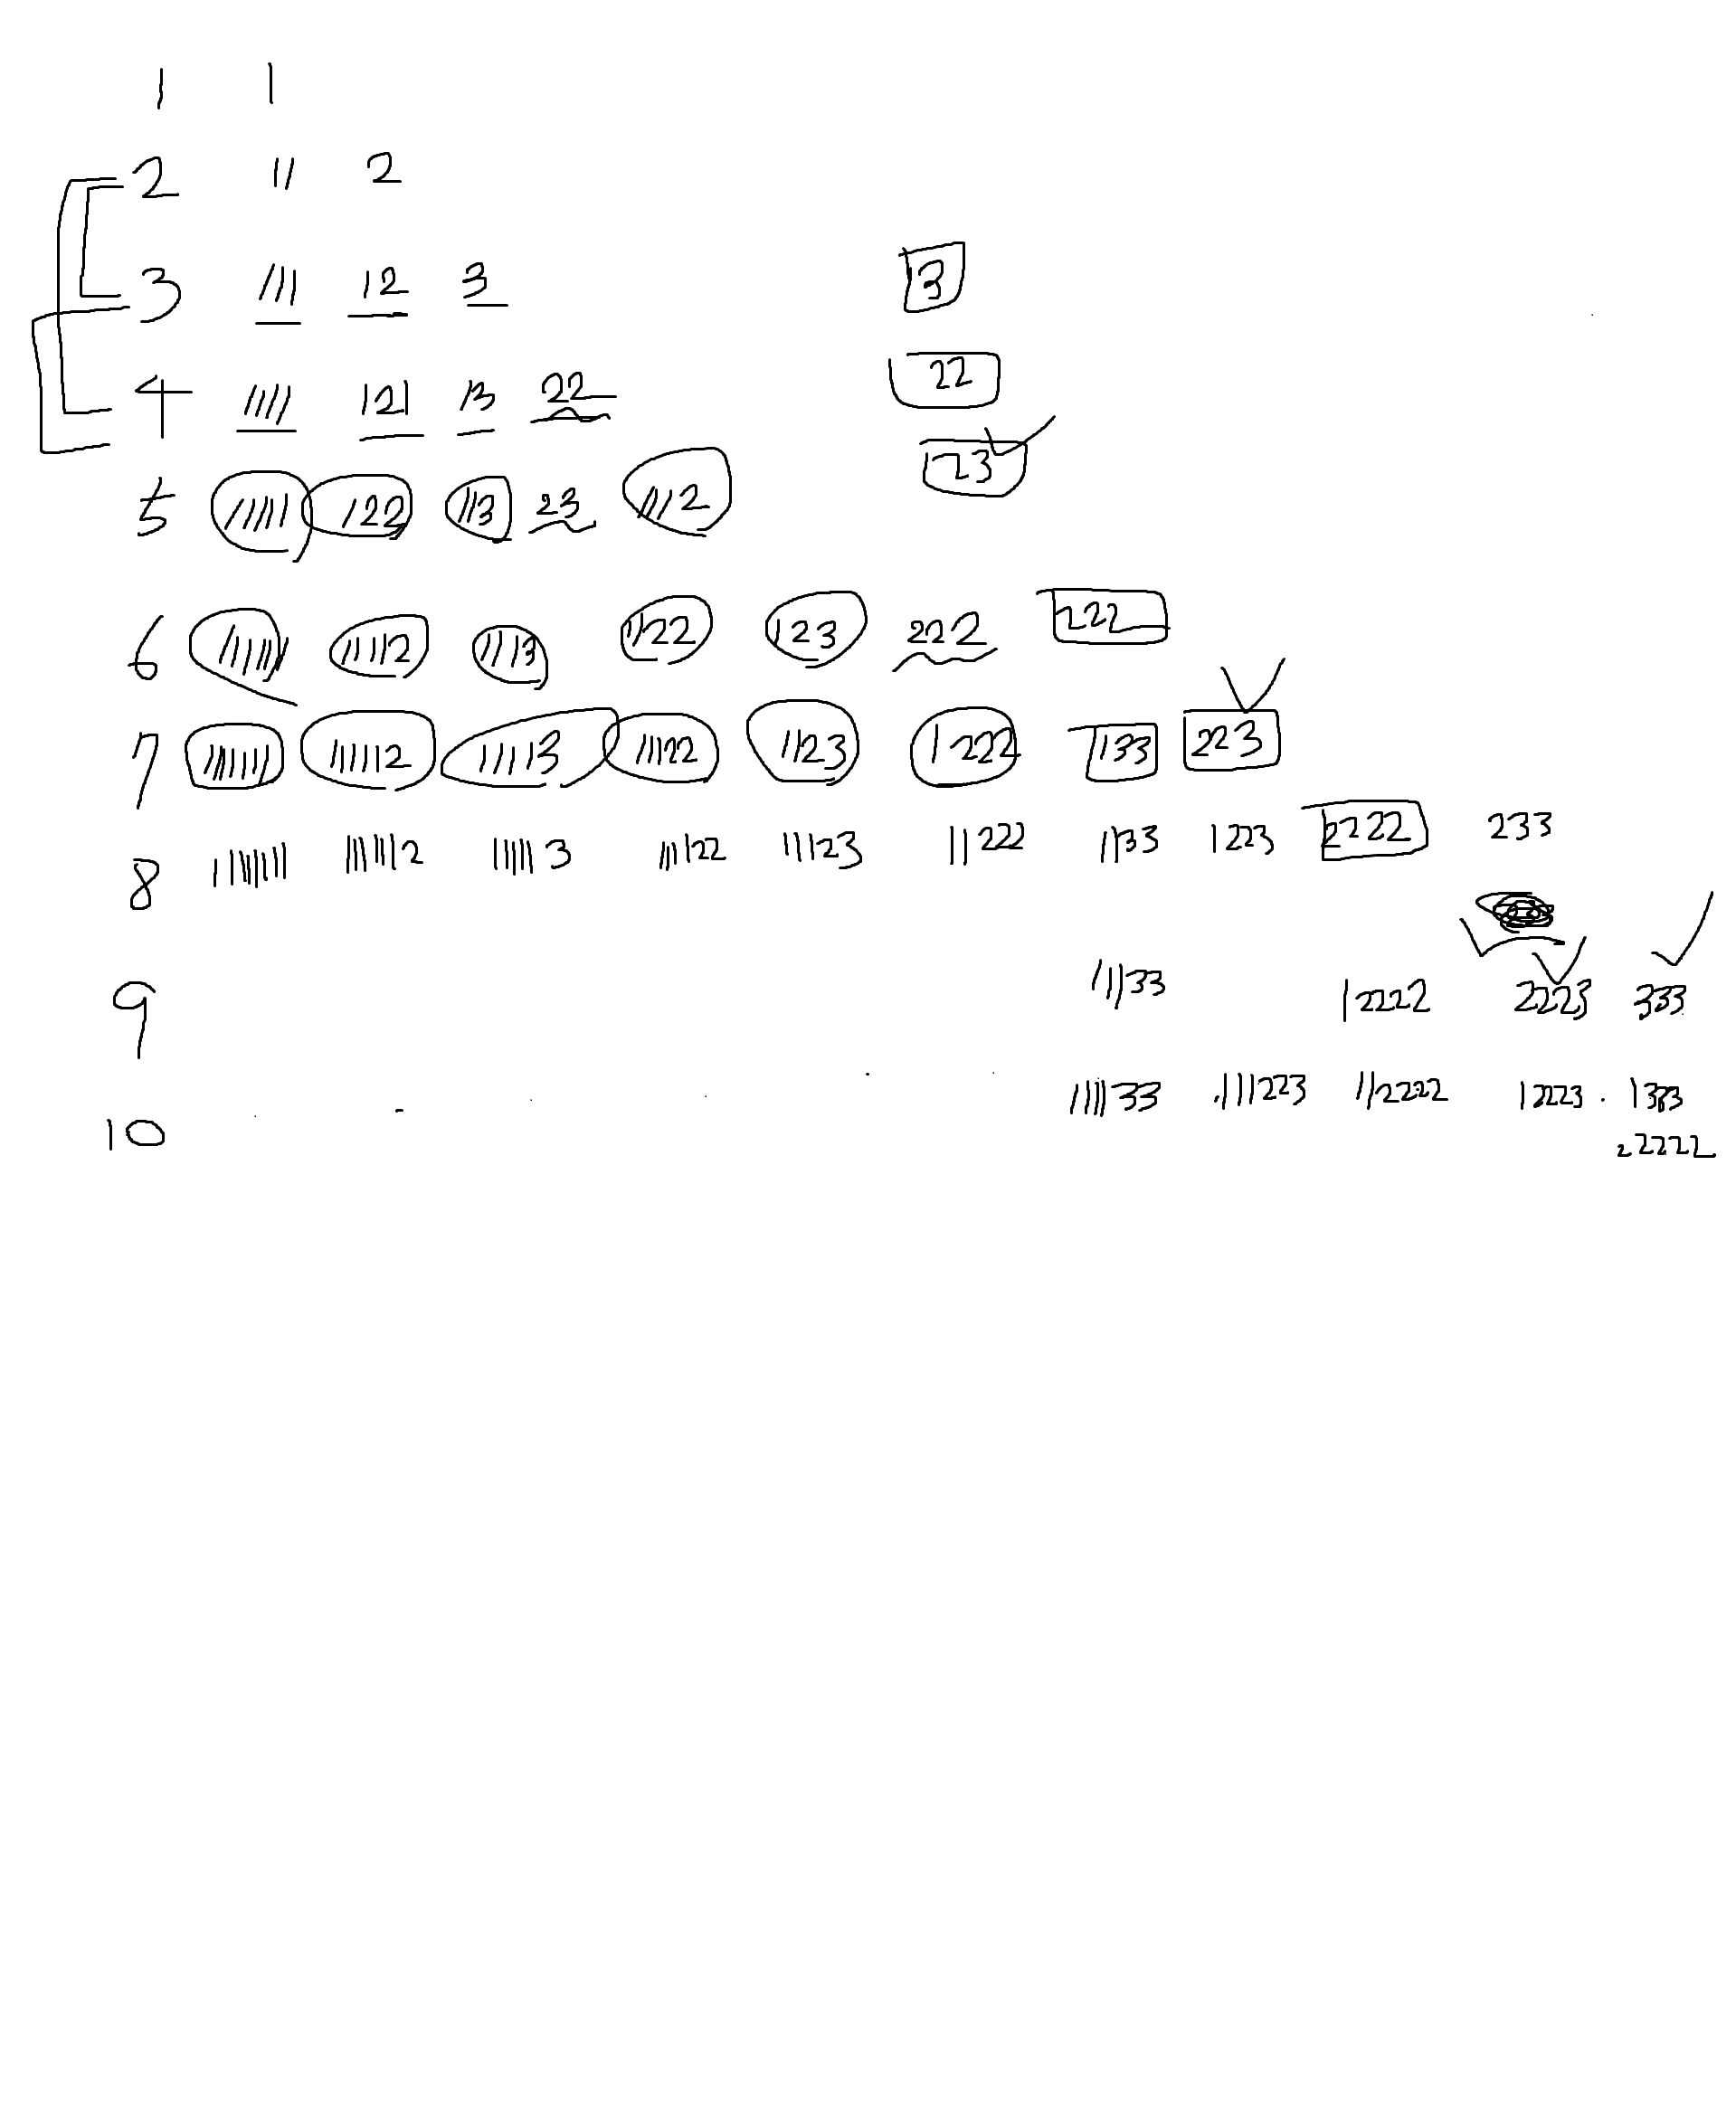 1 1
2 11 2
3 111 12 3 3
4 1111 121 13 22 22
23
5 11111 122 113 23 1112
6 111111 11112 1113 1122 123 222 222
7 1111111 111112 11113 11122 1123 1222 133 223
8 11111111 1111112 111113 111122 11123 11222 1133 1223 2222 233
9 11133 12222 2223 333
10 111133 111223 112222 12223 1333
22222